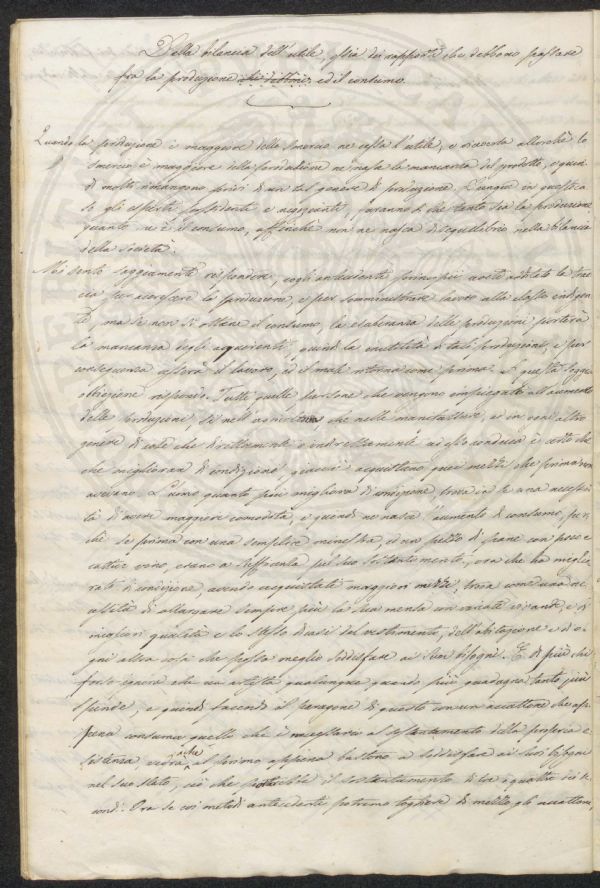 Della bilancia dell'utile, ossia dei rapporti che debbono passare
fra la produzione ed il consumo.
Quando la produzione è maggiore dello smercio ne cessa l'utile, e viceversa allorchè lo
smercio è maggiore della produzione ne nasce la mancanza del prodotto, e quin
di molti rimangono privi di un tal genere di produzione. Dunque in questo ca
so gli esperti possidenti e negozianti, faranno sì che tanta sia la produzione
quanto n'è il consumo, affinchè non ne nasca disequilibrio nella bilancia
della società.
Mi sento saggiamente rispondere, cogli antecedenti principii avete additato la trac
cia per accrescere la produzione, e per somministrare lavoro alla classe indigen
te, ma se non si ottiene il consumo, la esuberanza delle produzioni porterà
la mancanza degli acquirenti, quindi la inutilità di tali produzioni, e per
conseguenza cesserà il lavoro, ed il male ritorna come prima. A questa saggia
obbiezione rispondo. Tutte quelle persone che vengono impiegate all'aumento
delle produzioni, sì nell'agricoltura che nelle manifatture, ed in ogni altro
genere di arte che direttamente o indirettamente ad esso conduca è certo
che migliorano di condizione, giacchè acquistano quei mezzi che prima non
avevano. L'uomo quanto più migliora di condizione, trova in se una necessi
tà di avere maggiore comodità, e quindi ne nasce l'aumento di consumo, per
chè se prima con una semplice minestra, ed un pezzo di pane con poco e
cattivo vino, erano a sufficienza pel suo sostentamento, ora che ha miglio
rato di condizione, avendo acquistati maggiori mezzi, trova come una ne
cessità di allargare sempre più la sua mensa con variate vivande, e di
migliori qualità e lo stesso dicasi del vestimento, dell'abitazione e d'o
gni altra cosa che possa meglio soddisfare ai suoi bisogni. E di più chi
forse ignora che un artista qualunque quando più guadagna tanto più
spende, e quindi facendo il paragone di questo con un accattone che ap
pena consuma quello che è necessario al sostentamento della propria e
sistenza, vedrà che al primo appena bastano a soddisfare ai suoi bisogni
nel suo stato, ciò che potrebbe il sostentamento di tre o quattro dei se
condi. Ora se coi metodi antecedenti potremo togliere di mezzo gli accattoni,